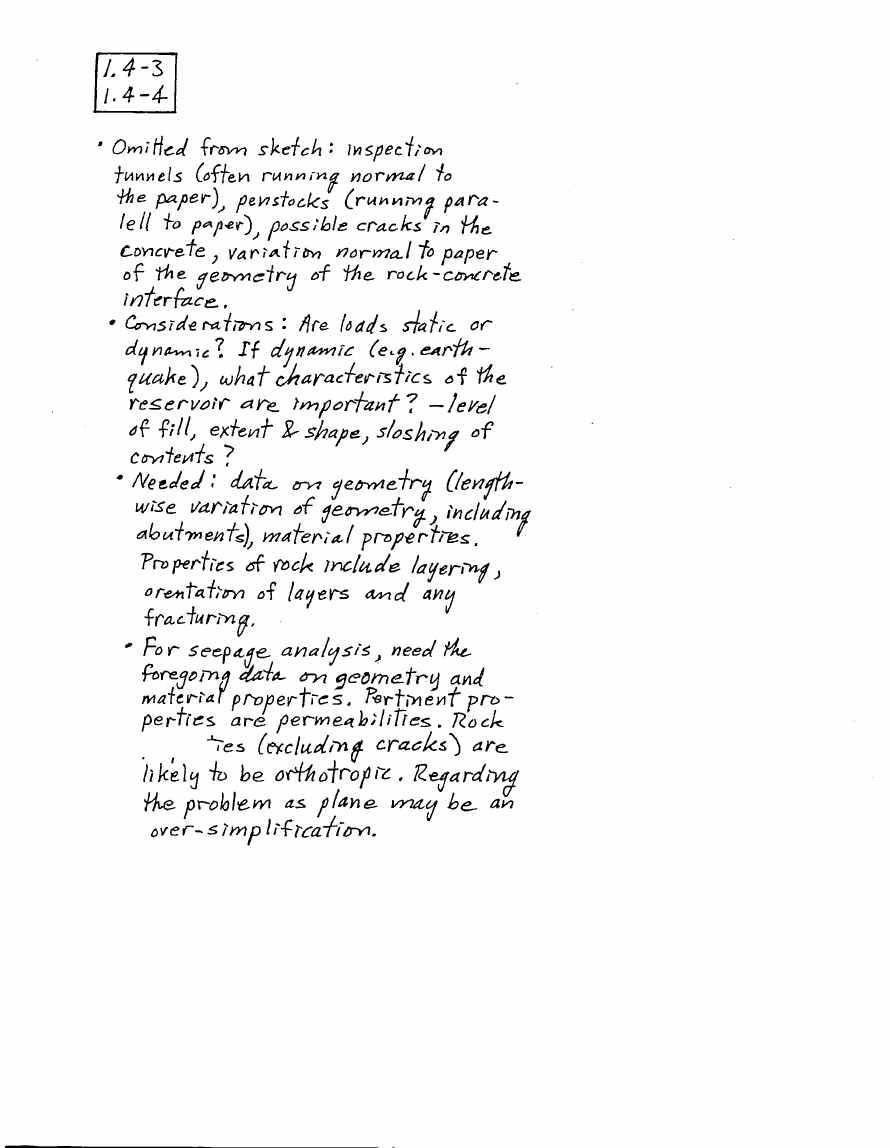 1.4-3
1.4-4
• Omitted from sketch: inspection
tunnels (often running normal to
the paper), penstocks (running para-
lell to paper), possible cracks in the
concrete, variation normal to paper
of the geometry of the rock-concrete
interface.
• Considerations: Are loads static or
dynamic? If dynamic (e.g. earth-
quake), what characteristics of the
reservoir are important? — level
of fill, extent & shape, sloshing of
contents?
• Needed: data on geometry (length-
wise variation of geometry, including
abutments), material properties.
Properties of rock include layering,
orentation of layers and any
fracturing.
• For seepage analysis, need the
foregoing data on geometry and
material properties. Pertinent pro-
perties are permeabilities. Rock
(excluding cracks) are
likely to be orthotropic. Regarding
the problem as plane may be an
over-simplification.